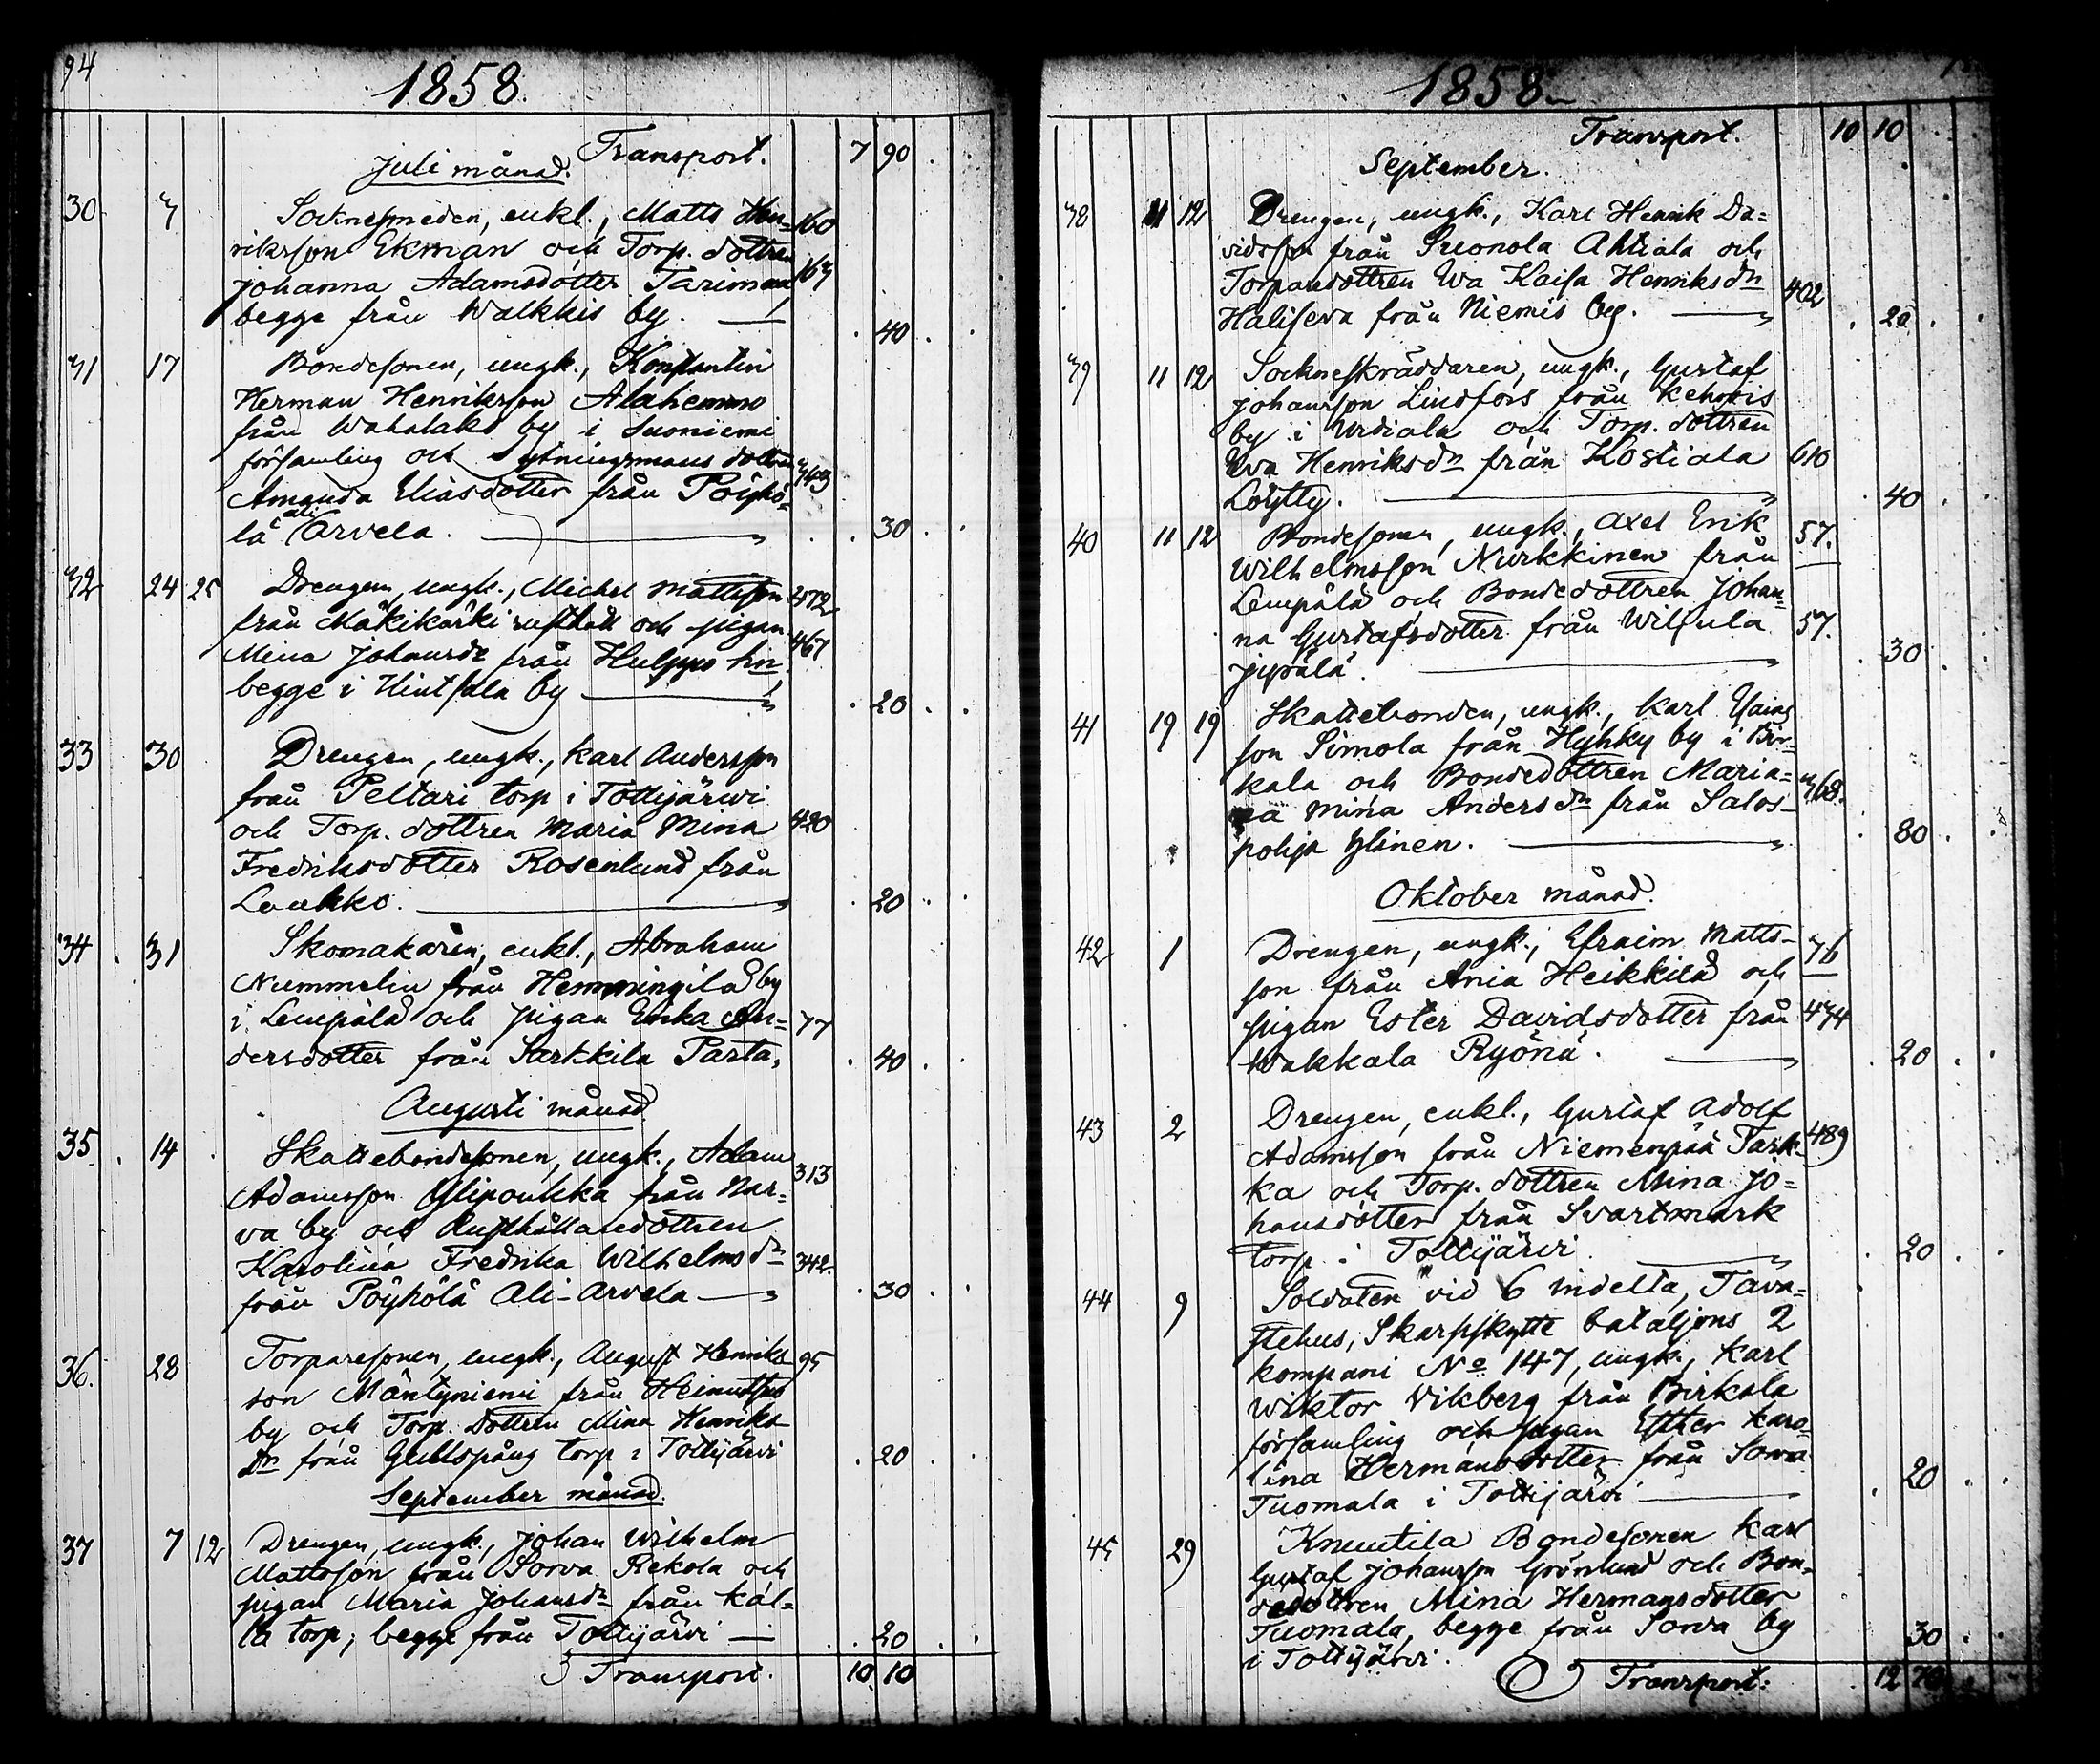 94
1858.
Transport. 7 90
Juli månad.
30 7 Socknesmeden, enkl., Matts Hen= 160
riksson Ekman och Torp. dottren
Johanna Adamsdotter Tariman 167
begge från Walkkis by. 40
31 17 Bondesonen, ungk., Konstantin
Herman Henriksson Alahemmo
från Wahalaks by i Suoniemi
församling och Sytningsmans dottren 343
Amanda Eliasdotter från Pöyhö-
lä ali Arvela. 30
32 24 25 Drengen, ungk., Michel Mattsson 472
från Mäkikärki rusthåll och pigan
Mina Johansdr från Hulppo hn 467
begge i Hintsala by 20
33 30 Drengen, ungk., Karl Andersson
från Peltari torp i Tottijärwi
och Torp. dottren Maria Mina 420
Fredriksdotter Rosenlund från
Laukko. 20
34 31 Skomakaren, enkl., Abraham
Nummelin från Hemmingilä by
i Lempälä och pigan Erika An= 77
dersdotter från Sarkkila Parta, 40
Augusti månad.
35. 14 Skattebondesonen, ungk., Adam 313
Adamsson Ylipoukka från Nar=
va by och Rusthållaredottren
Karolina Fredrika Wilhelmsdr 342.
från Pöyhölä Ali-Arvela 30
36. 28 Torparesonen, ungk., August Henriks 95
son Mäntyniemi från
by och Torp. dottren Mina Henriks
Dr från Gullspång torp i Tottijärvi 20
September månad.
37 7 12 Drengen, ungk., Johan Wilhelm
Mattsson från Sorva Rekola och
pigan Maria Johansdr från Käl=
lä torp, begge från Tottijärvi 20
Transport. 10 10
1858.
Transport. 10 10
September.
38 11 12 Drengen, ungk., Karl Henrik Da=
vidsson från Suonola Ahtiala och
Torparedottren Ewa Kaisa Henriksdr 402
Haliseva från Niemis by. 20
39 11 12 Sockneskräddaren, ungk., Gustaf
Johansson Lindfors från Kehois
by i Urdiala och Torp. dottren
Ewa Henriksdr från Kostiala 610
Löytty. 40
40 11 12 Bondesonen, ungk., Axel Erik 57.
Wilhelmsson Nurkkinen från
Lempälä och Bondedottren Johan=
na Gustafsdotter från Wilpula 57.
Jipälä. 30
41 19 19 Skattebonden, ungk., Karl
son Simola från Hyhky by i Bir=
kala och Bondedottren Maria= 368.
na Mina Andersdr från Salos-
pohja Ylinen. 80
Oktober månad.
42 1 Drengen, ungk., Efraim Matts- 76
son från Ania Heikkilä och
pigan Ester Davidsdotter från 474
Wakkala Ryönä. 20
43 2 Drengen, enkl., Gustaf Adolf
Adamsson från Niemenpää Park- 489
ka och Torp. dottren Mina Jo=
hansdotter från Svartmark
torp i Tottijärvi 20
44 9 Soldaten vid 6 indelta, Tava=
stehus, Skarpskytte bataljons 2
kompani No 147, ungk., Karl
Wiktor Vikberg från Birkala
församling och pigan Esther Karo=
lina Hermansdotter från Sorva
Tuomala i Tottijärvi 20
45 29 Knuutila Bondesonen Karl
Gustaf Johansson Grönlund och Bon=
dedottren Mina Hermansdotter
Tuomala, begge från Sorva by
i Tottijärvi. 30
Transport: 12 70